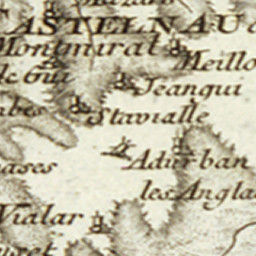 CASTELNAU de
Montmiral
Meillo
de Gui
Jeanqui
Stavialle
Adurban
ases
les Angla
Vialar